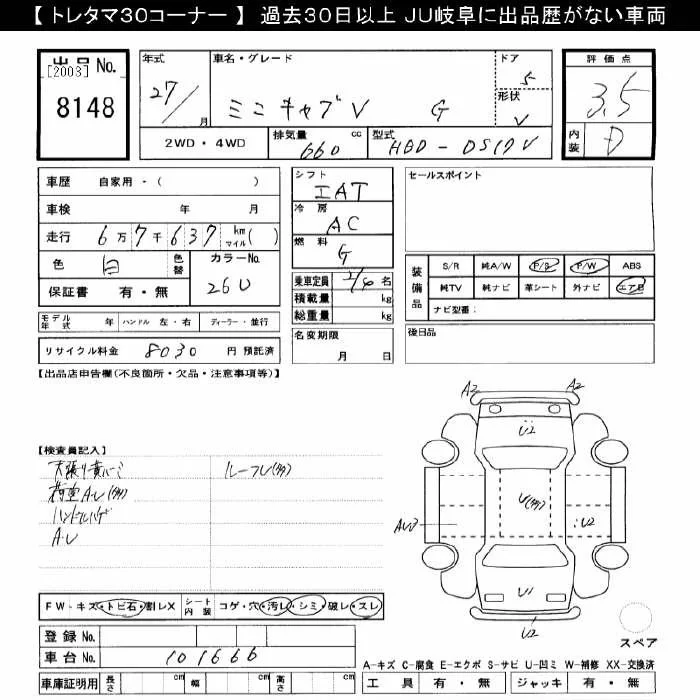 【 トレタマ30コーナー 】 過去30日以上 JU岐阜に出品歴がない車両
出品 No.
[2003]
8148
年式
27/
月
車名・グレード
ミニキャブV G
ドア
5
形状
V
2WD・4WD
排気量 660 cc
型式 HBD-DS17V
評価点
3.5
内装 D
車歴 自家用-( )
車検 年 月
走行 6万7千637 km マイル( )
色 白 色替
カラーNo. 26U
保証書 有・無
シフト
IAT
冷房
AC
燃料
G
乗車定員 2/4 名
積載量 kg
総重量 kg
セールスポイント
装備品
S/R 純A/W P/S P/W ABS
純TV 純ナビ 革シート 外ナビ エアB
ナビ型番:
モデル年式 年 ハンドル 左・右 ディーラー・並行
リサイクル料金 8030 円 預託済
名変期限
月 日
後日品
【出品店申告欄(不良箇所・欠品・注意事項等)】
【検査員記入】
天張り黄バミ ルーフU(多)
荷室A.U(多)
ハンドルハゲ
A.U
A2 A2
U2
U(多)
AU3
U2
U1
U2
スペア
FW-キズ・トビ石・割レX シート内装 コゲ・穴・汚レ・シミ・破レ・スレ
登録 No.
車台 No. 101666
A-キズ C-腐食 E-エクボ S-サビ U-凹ミ W-補修 XX-交換済
車庫証明用 長さ cm 幅 cm 高さ cm
工具 有・無 ジャッキ 有・無